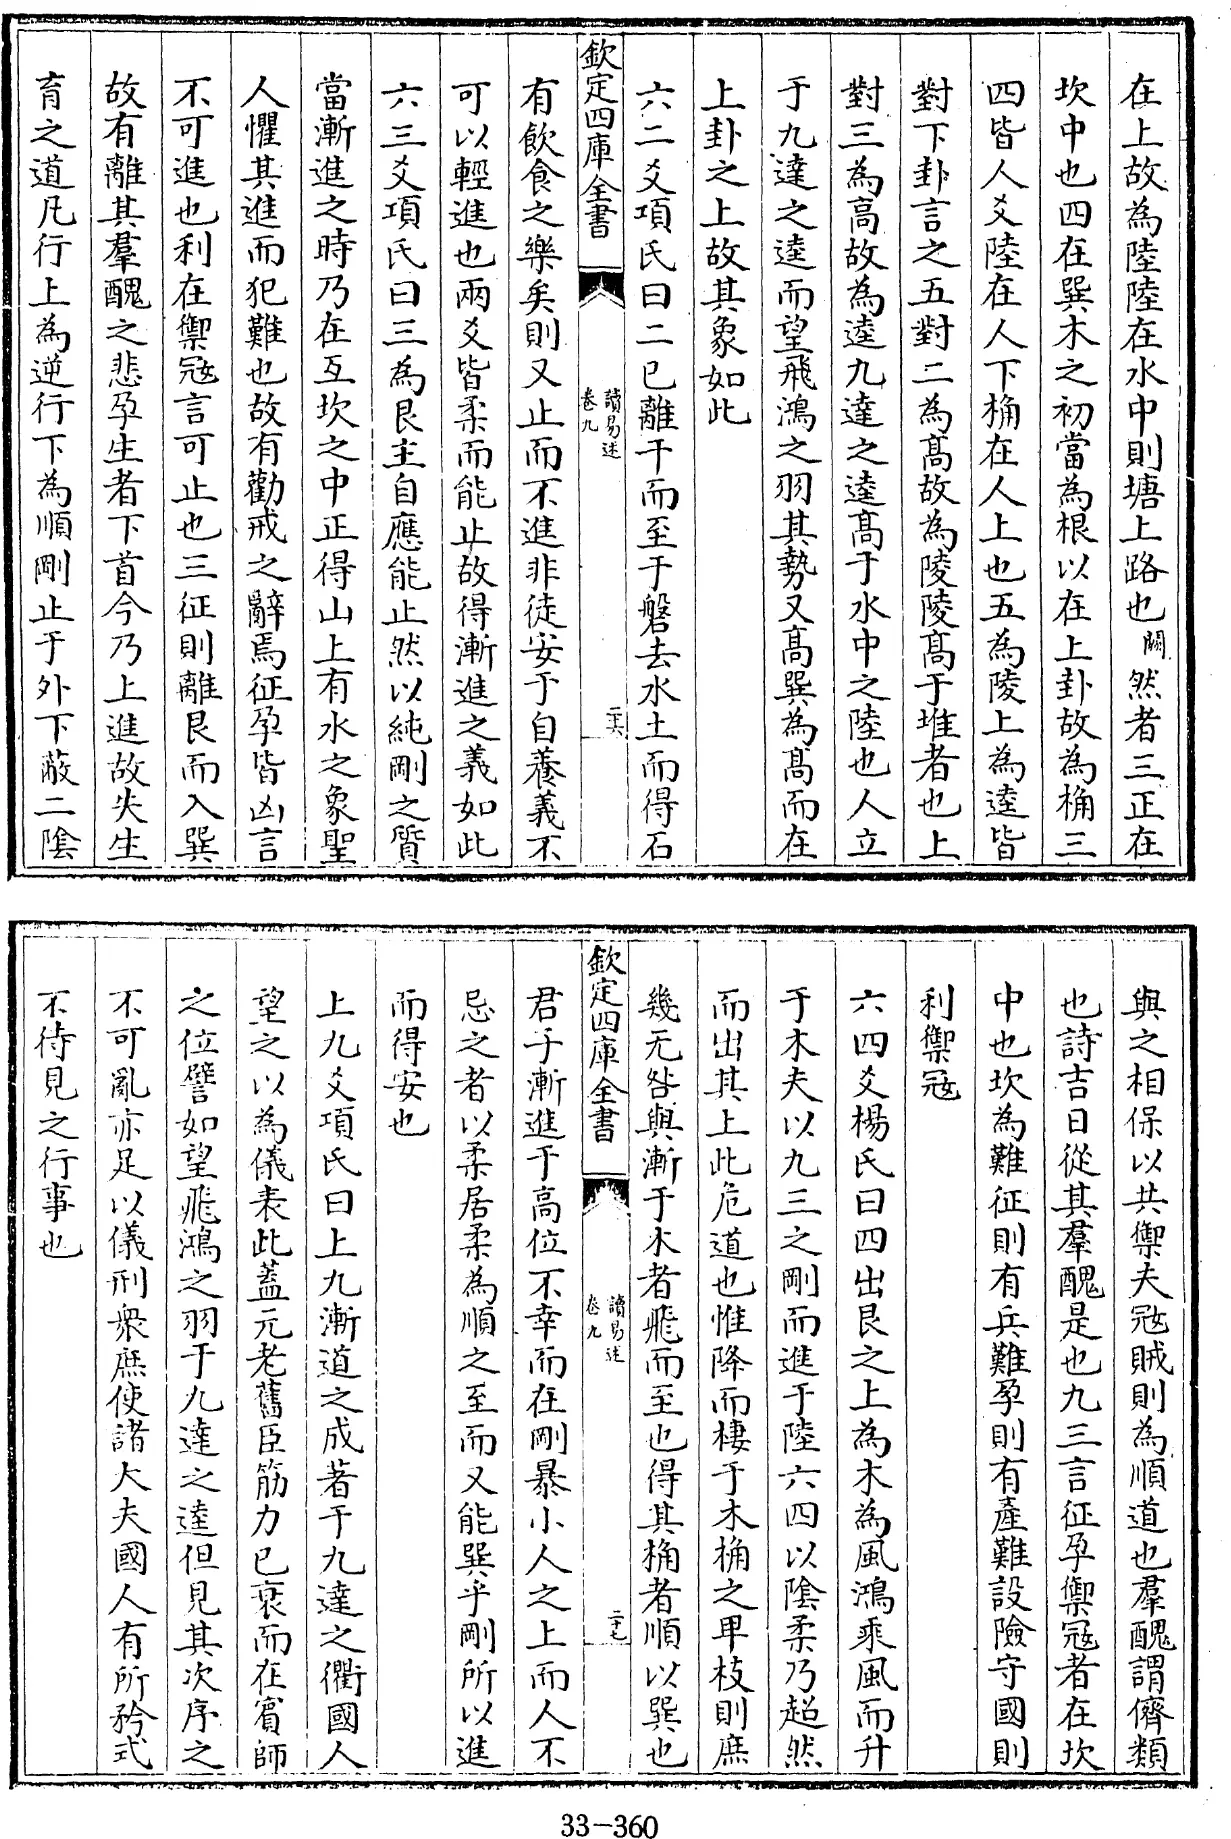 在上故為陸陸在水中則塘上路也闕然者三正在
坎中也四在巽木之初當為根以在上卦故為桷三
四皆人爻陸在人下桷在人上也五為陵上為逵皆
對下卦言之五對二為髙故為陵陵髙于堆者也上
對三為高故為逵九達之逵髙于水中之陸也人立
于九達之逵而望飛鴻之羽其勢又髙巽為髙而在
上卦之上故其象如此
六二爻項氏曰二已離干而至于磐去水土而得石
欽定四庫全書
讀易述
卷九
二十六
有飲食之樂矣則又止而不進非徒安于自養義不
可以輕進也兩爻皆柔而能止故得漸進之義如此
六三爻項氏曰三為艮主自應能止然以純剛之質
當漸進之時乃在互坎之中正得山上有水之象聖
人懼其進而犯難也故有勸戒之辭焉征孕皆凶言
不可進也利在禦冦言可止也三征則離艮而入巽
故有離其羣醜之悲孕生者下首今乃上進故失生
育之道凡行上為逆行下為順剛止于外下蔽二陰
與之相保以共禦夫冦賊則為順道也羣醜謂儕類
也詩吉日從其羣醜是也九三言征孕禦冦者在坎
中也坎為難征則有兵難孕則有產難設險守國則
利禦冦
六四爻楊氏曰四出艮之上為木為風鴻乘風而升
于木夫以九三之剛而進于陸六四以陰柔乃超然
而出其上此危道也惟降而棲于木桷之卑枝則庶
幾无咎與漸于木者飛而至也得其桷者順以巽也
欽定四庫全書
讀易述
卷九
二十七
君子漸進于高位不幸而在剛暴小人之上而人不
忌之者以柔居柔為順之至而又能巽乎剛所以進
而得安也
上九爻項氏曰上九漸道之成著于九達之衢國人
望之以為儀表此蓋元老舊臣筋力已衰而在賓師
之位譬如望飛鴻之羽于九達之逵但見其次序之
不可亂亦足以儀刑衆庶使諸大夫國人有所矜式
不待見之行事也
33-360